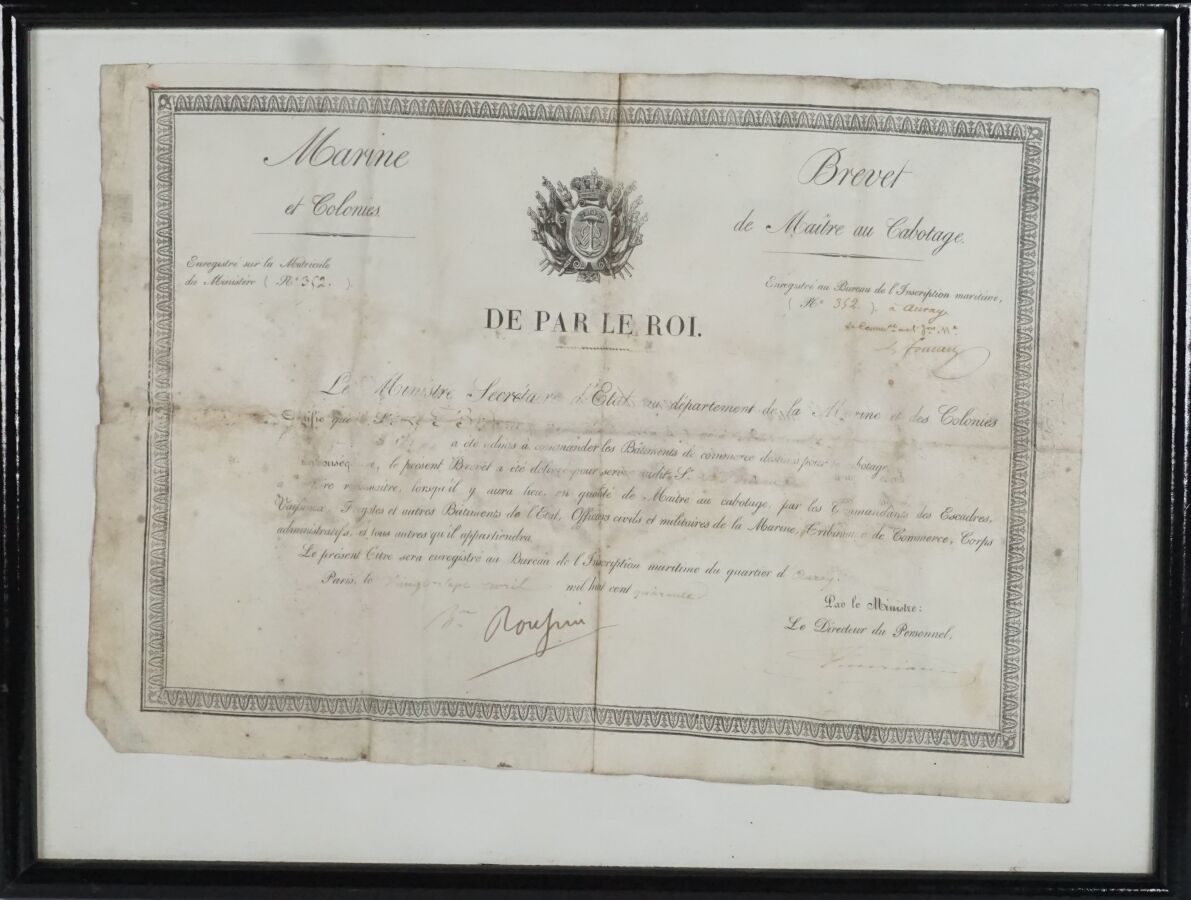 Marine
et Colonies.
Enregistré sur la Matricule
du Ministère ( N° 352. ).
Brevet
de Maître au Cabotage.
Enregistré au Bureau de l'Inscription maritime,
( N° 352. ). à Auray.
DE PAR LE ROI.
Le Ministre Secrétaire d'Etat au département de la Marine et des Colonies
Certifie que le S.r
a été admis à commander les Bâtiments de commerce destinés pour le cabotage,
conséquence, le présent Brevet a été délivré pour servir audit S.r
à faire reconnaître, lorsqu'il y aura lieu, en qualité de Maître au cabotage, par les Commandants des Escadres,
Vaisseaux Frégates et autres Bâtiments de l'Etat, Officiers civils et militaires de la Marine, Tribunaux de Commerce, Corps
administratifs, et tous autres qu'il appartiendra.
Le présent Titre sera enregistré au Bureau de l'Inscription maritime du quartier d'Auray.
Paris, le vingt-sept avril mil huit cent quarante
B.on Roussin
Par le Ministre:
Le Directeur du Personnel,